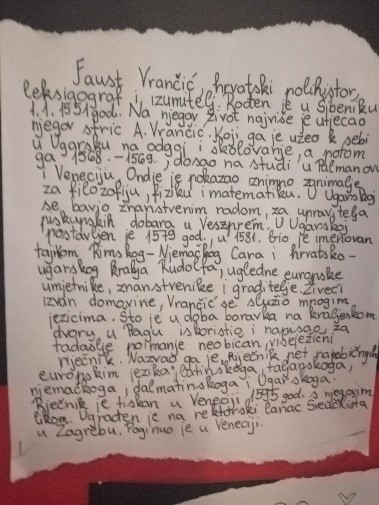 Faust Vrančić, hrvatski polihistor,
leksigograf i izumitelj. Rođen je u Šibeniku
1.1.1551 god. Na njegov život najviše je utjecao
njegov stric A. Vrančić. Koji ga je uzeo k sebi
u Ugarsku na odgoj i školovanje, a potom
ga 1568. - 1569., dosao na studij u Padmanovu
i Veneciju. Ondje je pokazao iznimno zanimanje
za filozofiju, fiziku i matematiku. U Ugarskoj
se bavio znanstvenim radom, za upravitelja
biskupskih dobara u Veszprem. U Ugarskoj
postavljen je 1579 god., u 1581. bio je imenovan
tajnom Rimskog-Njemačkog Cara i hrvatsko-
ugarskog kralja Rudolfa, ugledne europske
umjetnike, znanstvenike i graditelje. Živeći
izvan domovine, Vrančić se služio mnogim
jezicima. Što je u doba boravka na kraljevskom
dvoru u Pragu iskoristio i napisao, za
tadašnje poimanje neobičan, višejezični
rječnik. Nazvao ga je Rječnik pet najobičnijih
europskim jezika, latinskoga, talijanskoga,
njemačkoga, dalmatinskoga i Ugarskoga.
Rječnik je tiskan u Veneciji 1595 god. s njegovim
likom. Ugrađen je na rektorski lanac Sveučilišta
u Zagrebu. Poginuo je u Veneciji.